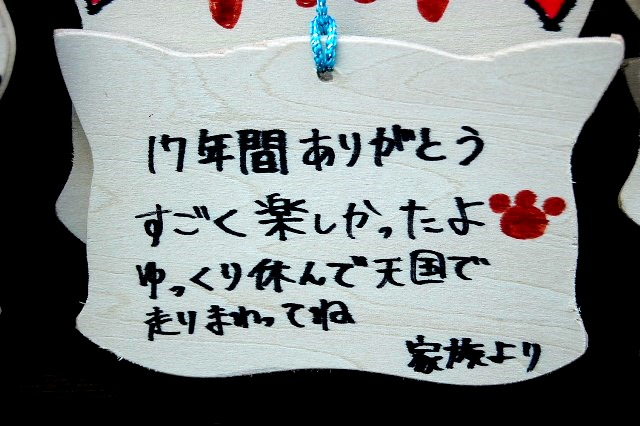 17年間ありがとう
すごく楽しかったよ
ゆっくり休んで天国で
走りまわってね
家族より